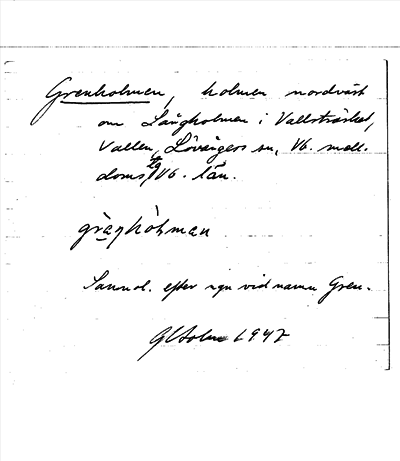 Grenholmen, holmen nordväst
om Långholmen i Vallsträsket,
Vallen, Lövångers sn, Vb. mell.
doms tg Vb. län.
gràŋhòlman
Sannol. efter ngn vid namn Gren.
1947